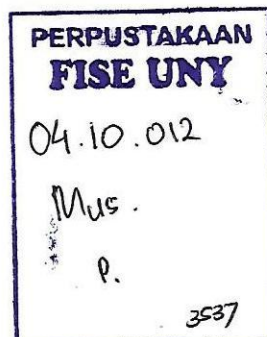 PERPUSTAKAAN
FISE UNY
04.10.012
Mus.
P.
3537